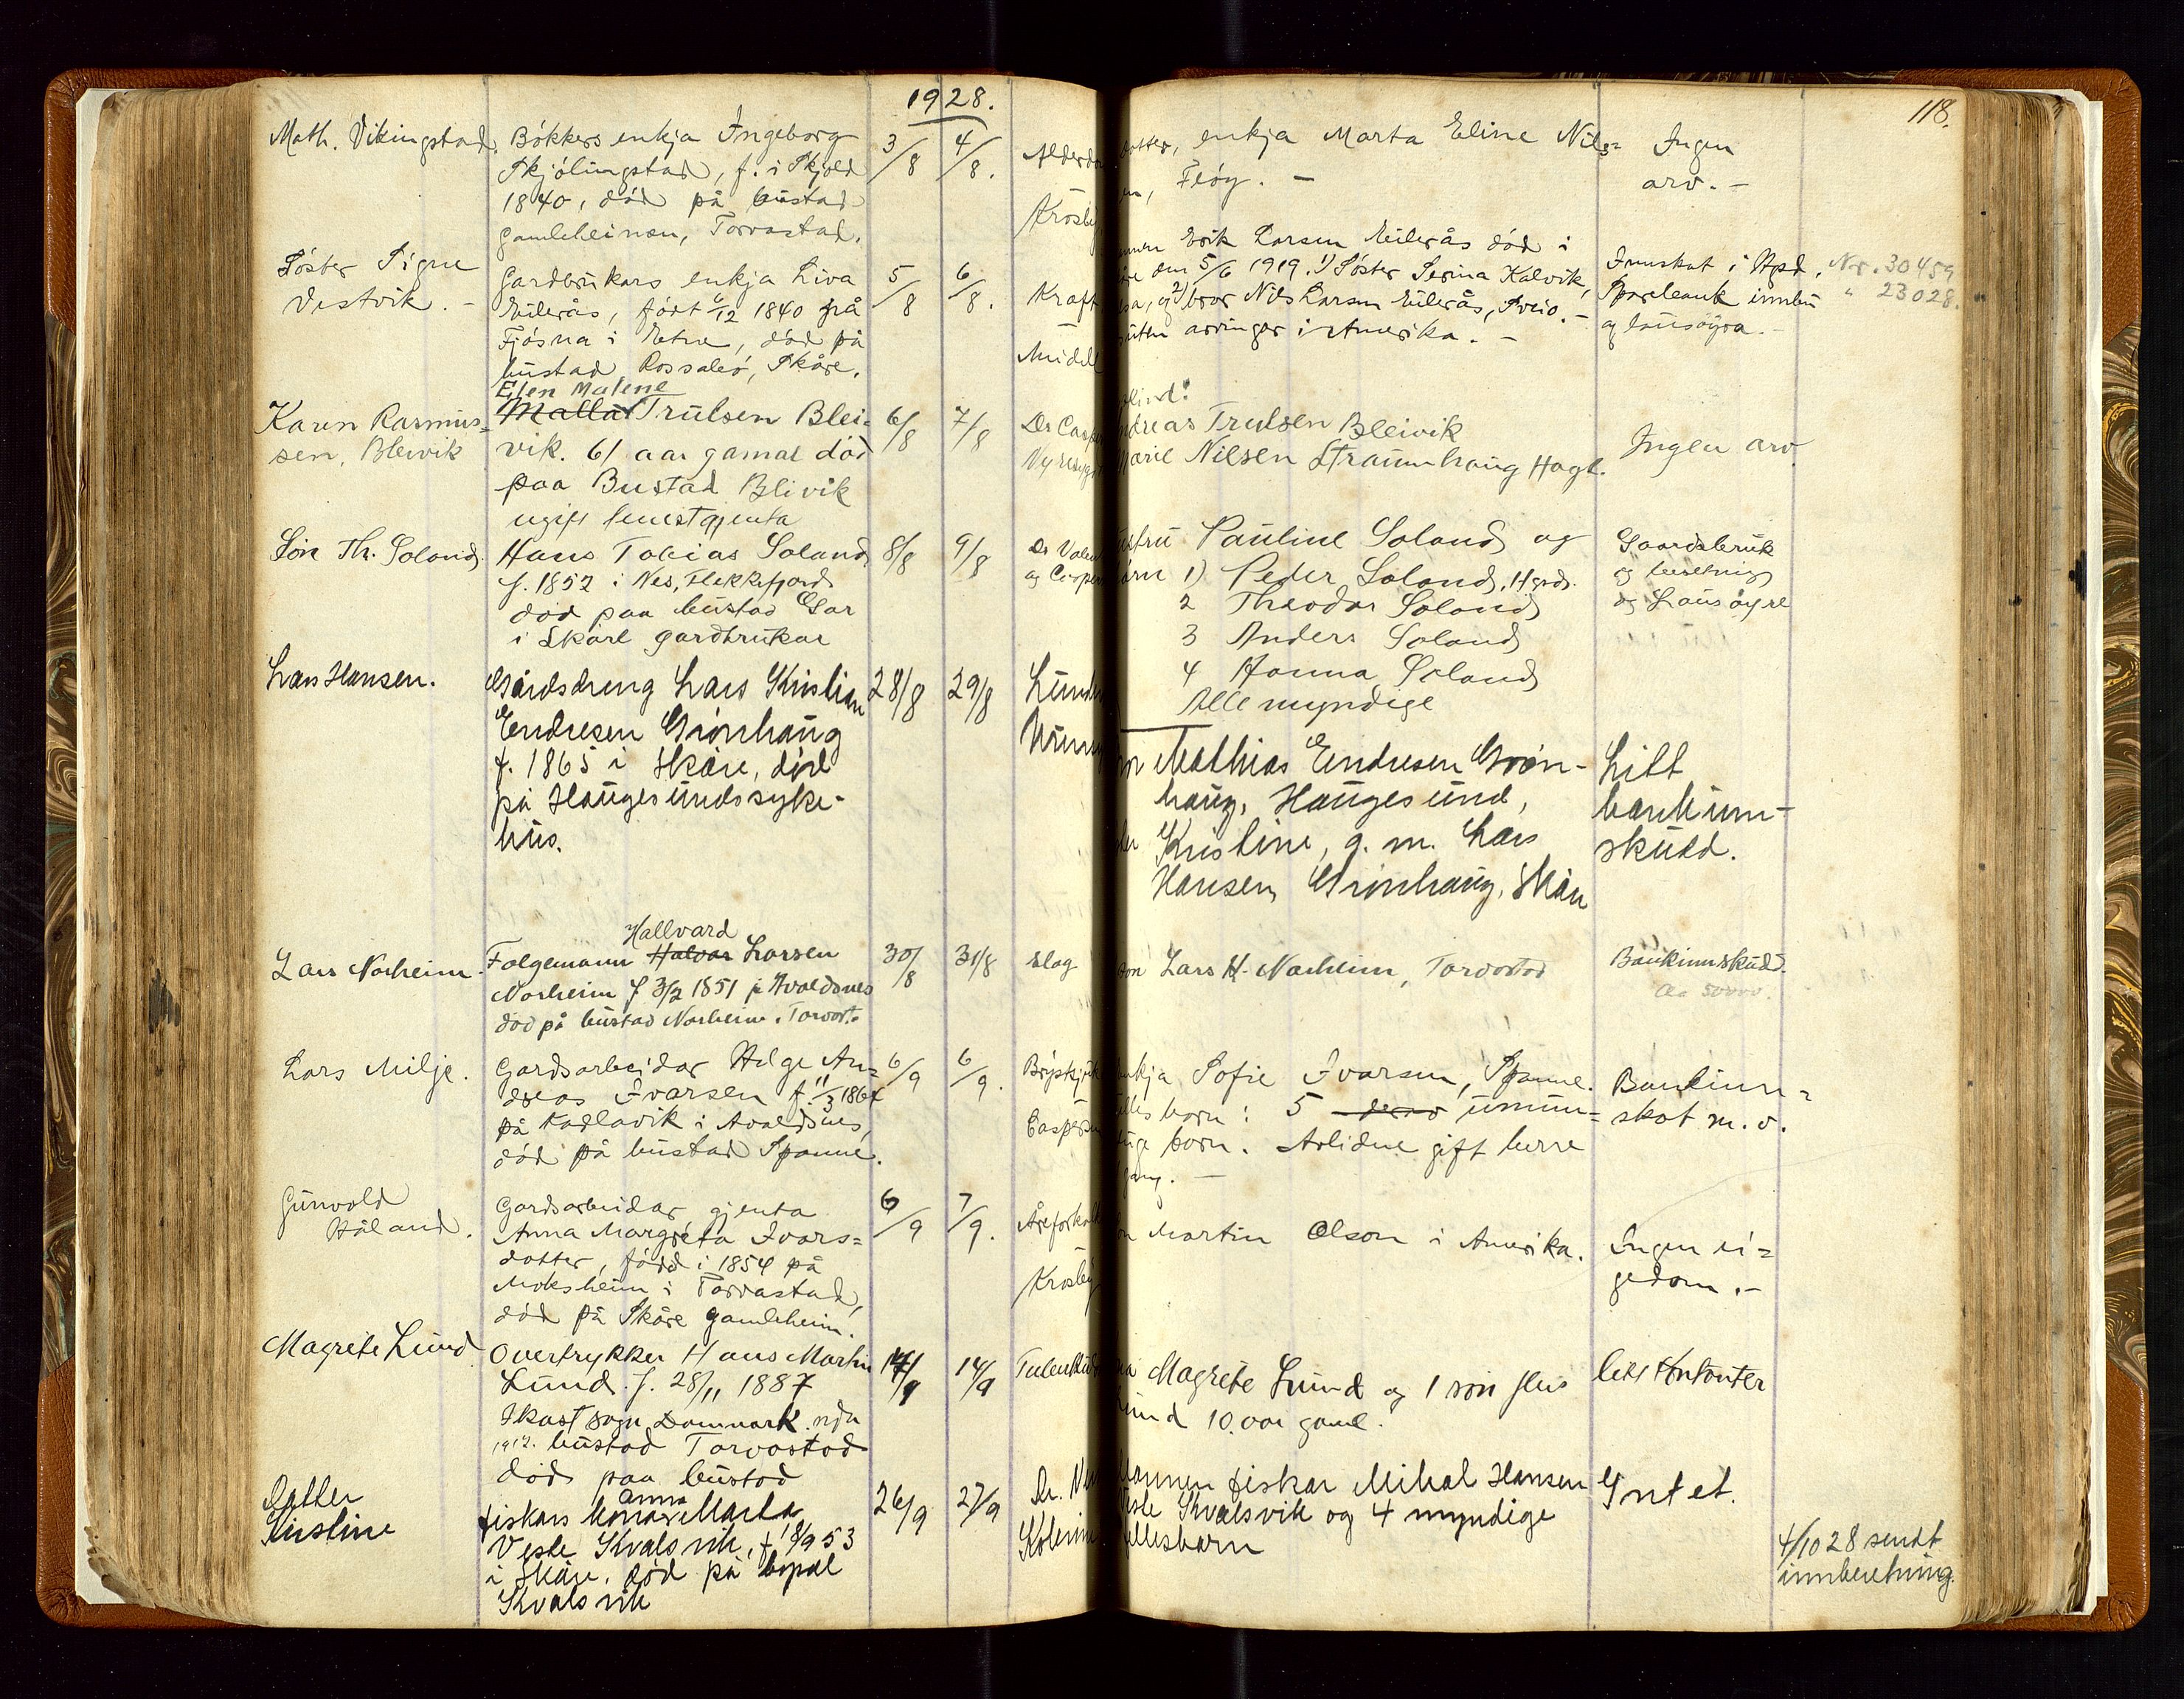 1928.
118.
Math. Vikingstad.
Bökkers enkja Ingeborg
Skjölingstad, f. i Skjold
1840, död på bustad
Gamleheimen, Torvastad.
3/8
4/8.
Alderdo
Krosby
dotter, enkja Marta Eline Nils=
en, Flöy. -
Ingen
arv. -
Söster Signe
Vestvik. -
Gardbrukars enkja Liva
Eilerås, födt 6/12 1840 på
Fjösna i Etne, död på
bustad Rossabö, Skåre.
5/8
6/8.
Kraft
Middel
Erik Larsen Eilerås död i
den 5/6 1919. 1) Söster Serina Kalvik,
og 2) bror Nils Larsen Eilerås, Sveio. -
arvinger i Amerika. -
Innskot i Hgsd.
Sparebank innbu
og lausöyra. -
Nr. 30459
" 23028.
Karen Rasmus=
sen, Bleivik
Elen Malene
Malla Trulsen Blei=
vik. 61 aar gamal död
paa Bustad Blivik
ugift tenestgjenta
6/8
7/8
Dr Casper
blind?
dreas Trulsen Bleivik
Marie Nilsen Straumhaug Hagl.
Ingen arv
Sön Th. Soland.
Hans Tobias Soland
f. 1857 i Nes, Flekkefjord
död paa bustad Gar
i Skåre gardbrukar
8/8
9/8
Dr Valen
og Casper
ustru Pauline Soland og
börn 1) Peder Soland, Hgsd.
2 Theodor Soland
3 Anders Soland
4 Hanna Soland
Alle myndige
Gaardsbruk
og besetning
og Lausöyre
Lars Hansen.
Gårdsdreng Lars Kristian
Endresen Grönhaug
f. 1865 i Skåre, död
på Haugesunds syke-
hus.
28/8
29/8
Mathias Endresen Grön-
haug, Haugesund,
Kristine, g. m. Lars
Hansen, Grönhaug, Skåre
Litt
bankinn-
skudd.
Lars Norheim.
Hallvard
Folgemann Halvar Larsen
Norheim f 3/2 1851 i Avaldsnes
död på bustad Norheim i Torvast.
30/8
31/8
slag
son Lars H. Norheim, Torvastad
Bankinnskudd.
Lars Milje.
Gardsarbeidar Helge An=
dreas Ivarsen f. 11/3 1864
på Kadlavik i Avaldsnes,
död på bustad Spanne.
6/9
6/9.
Caspersen
enkja Sofie Ivarsen, Spanne.
born: 5 derav umyn=
dige born. Avlidne gift berre
gang. -
Bankinn=
skot m. v.
Gunvald
Håland.
Gardsarbeidar gjenta
Anna Margreta Ivars=
dotter, född i 1854 på
Moksheim i Torvastad,
död på Skåre gamleheim.
6/9
7/9.
Åreforkalk
Krosby
Martin Olson i Amerika.
Ingen ei=
gedom. -
Magrete Lund
Overtrykker Hans Martin
Lund. f. 28/11 1887
Ikast sogn Danmark.
1912. bustad Torvastad
död paa bustad
14/9
Magrete Lund og 1 sön Jens
Lund 10 aar gaml.
litt Kontanter
Datter
Kristine
anna
fiskars kona Marta
Vestre Kvalsvik, f. 18/9 53
i Skåre, död på bopal
Kvalsvik
26/9
27/9
Dr.
Mannen fiskar Mikal Hansen
Kvalsvik og 4 myndige
fellesbarn
Intet.
4/10 28 sendt
innberetning.